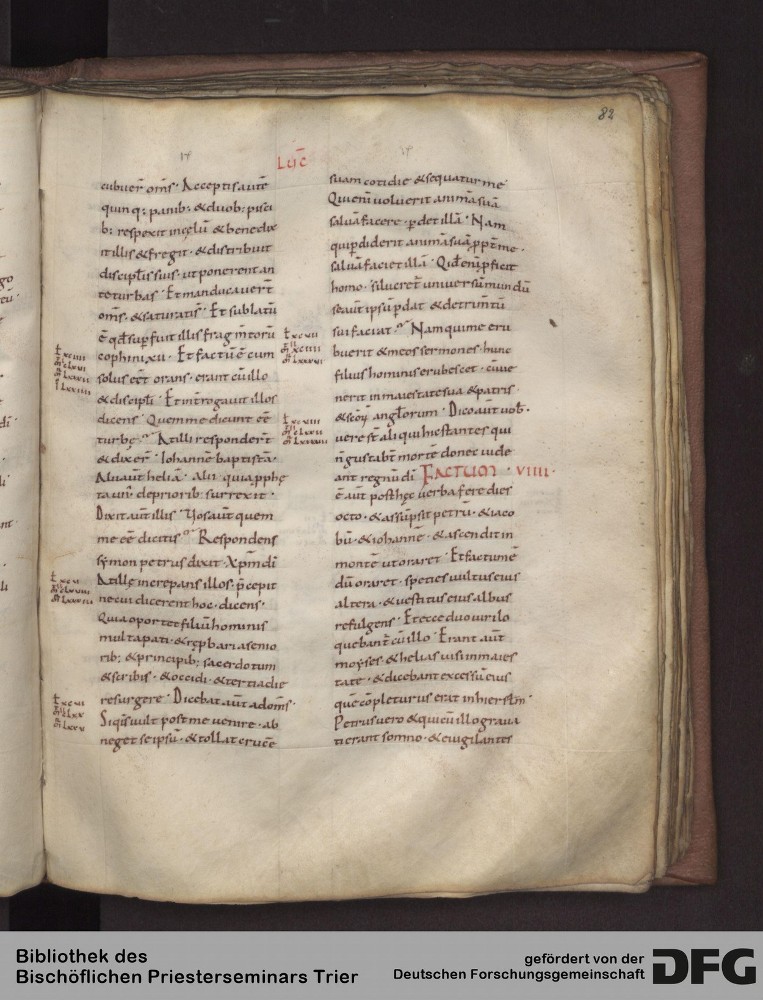 82
LUC̄
cubuer̄ om̄s · Acceptis autē
quinq; panib; & duob; pisci
b; respexit in cęlū & benedix
it illis & fregit · & distribuit
discipl̄is suis · ut ponerent an
te turbas · Et manducavert
om̄s · & saturati s̄ · Et sublatū
ē qd̄ supfuit illis fragm̄torū
cophini xii · Et factū ē cum
solus eēt orans · erant cū illo
& discipl̄i · Et int̄rogavit illos
dicens · Quem me dicunt eē
turbę · At illi respondert̄
& dixer̄ · Iohannē baptistā ·
Alii aut̄ heliā · alii quia pphę
ta un' de priorib; surrexit ·
Dixit aut̄ illis · Vos aut̄ quem
me eē dicitis · Respondens
symon petrus dixit · Xp̄m dī
At ille increpans illos · p̄cepit
ne cui dicerent hoc · dicens ·
Quia oportet filiū hominis
multa pati · & repbari a senio
rib; & principib; sacerdotum
& scribis · & occidi · & tertia die
resurgere · Dicebat aut̄ ad om̄s ·
Siq̄s vult post me venire · ab
neget se ipsū · & tollat crucē
suam cotidie & sequatur me ·
Qui enī voluerit animā suā
salvā facere · pdet illā · Nam
qui pdiderit animā suā ppt̄ me ·
salvā faciet illā · Qid enī pficit
homo · si lucret̄ universū mundū
se aut̄ ipsū pdat & detrim̄tū
sui faciat · Nam qui me eru
buerit & meos sermones · hunc
filius hominis erubescet · cū ve
nerit in maiestate sua & patris ·
& scōȝ angl̄orum · Dico aut̄ vob̄ ·
vere st̄ aliqui hic stantes qui
n̄ gustabt̄ morte donec vide
ant regnū dī FACTUM · VIIII ·
ē aut̄ post hęc verba fere dies
octo · & assūpsit petrū · & iaco
bū · & iohannē · & ascendit in
montē ut oraret · Et factum ē
dū oraret · species vultus eius
altera · & vestitus eius albus
refulgens · Et ecce duo viri lo
quebant̄ cū illo · Erant aut̄
moyses · & helias visi in maies
tate · & dicebant excessū eius
quē cōpleturus erat in hierslm̄ ·
Petrus vero & qui cū illo grava
ti erant somno · & evigilantes
Bibliothek des
Bischöflichen Priesterseminars Trier
gefördert von der
Deutschen Forschungsgemeinschaft
DFG